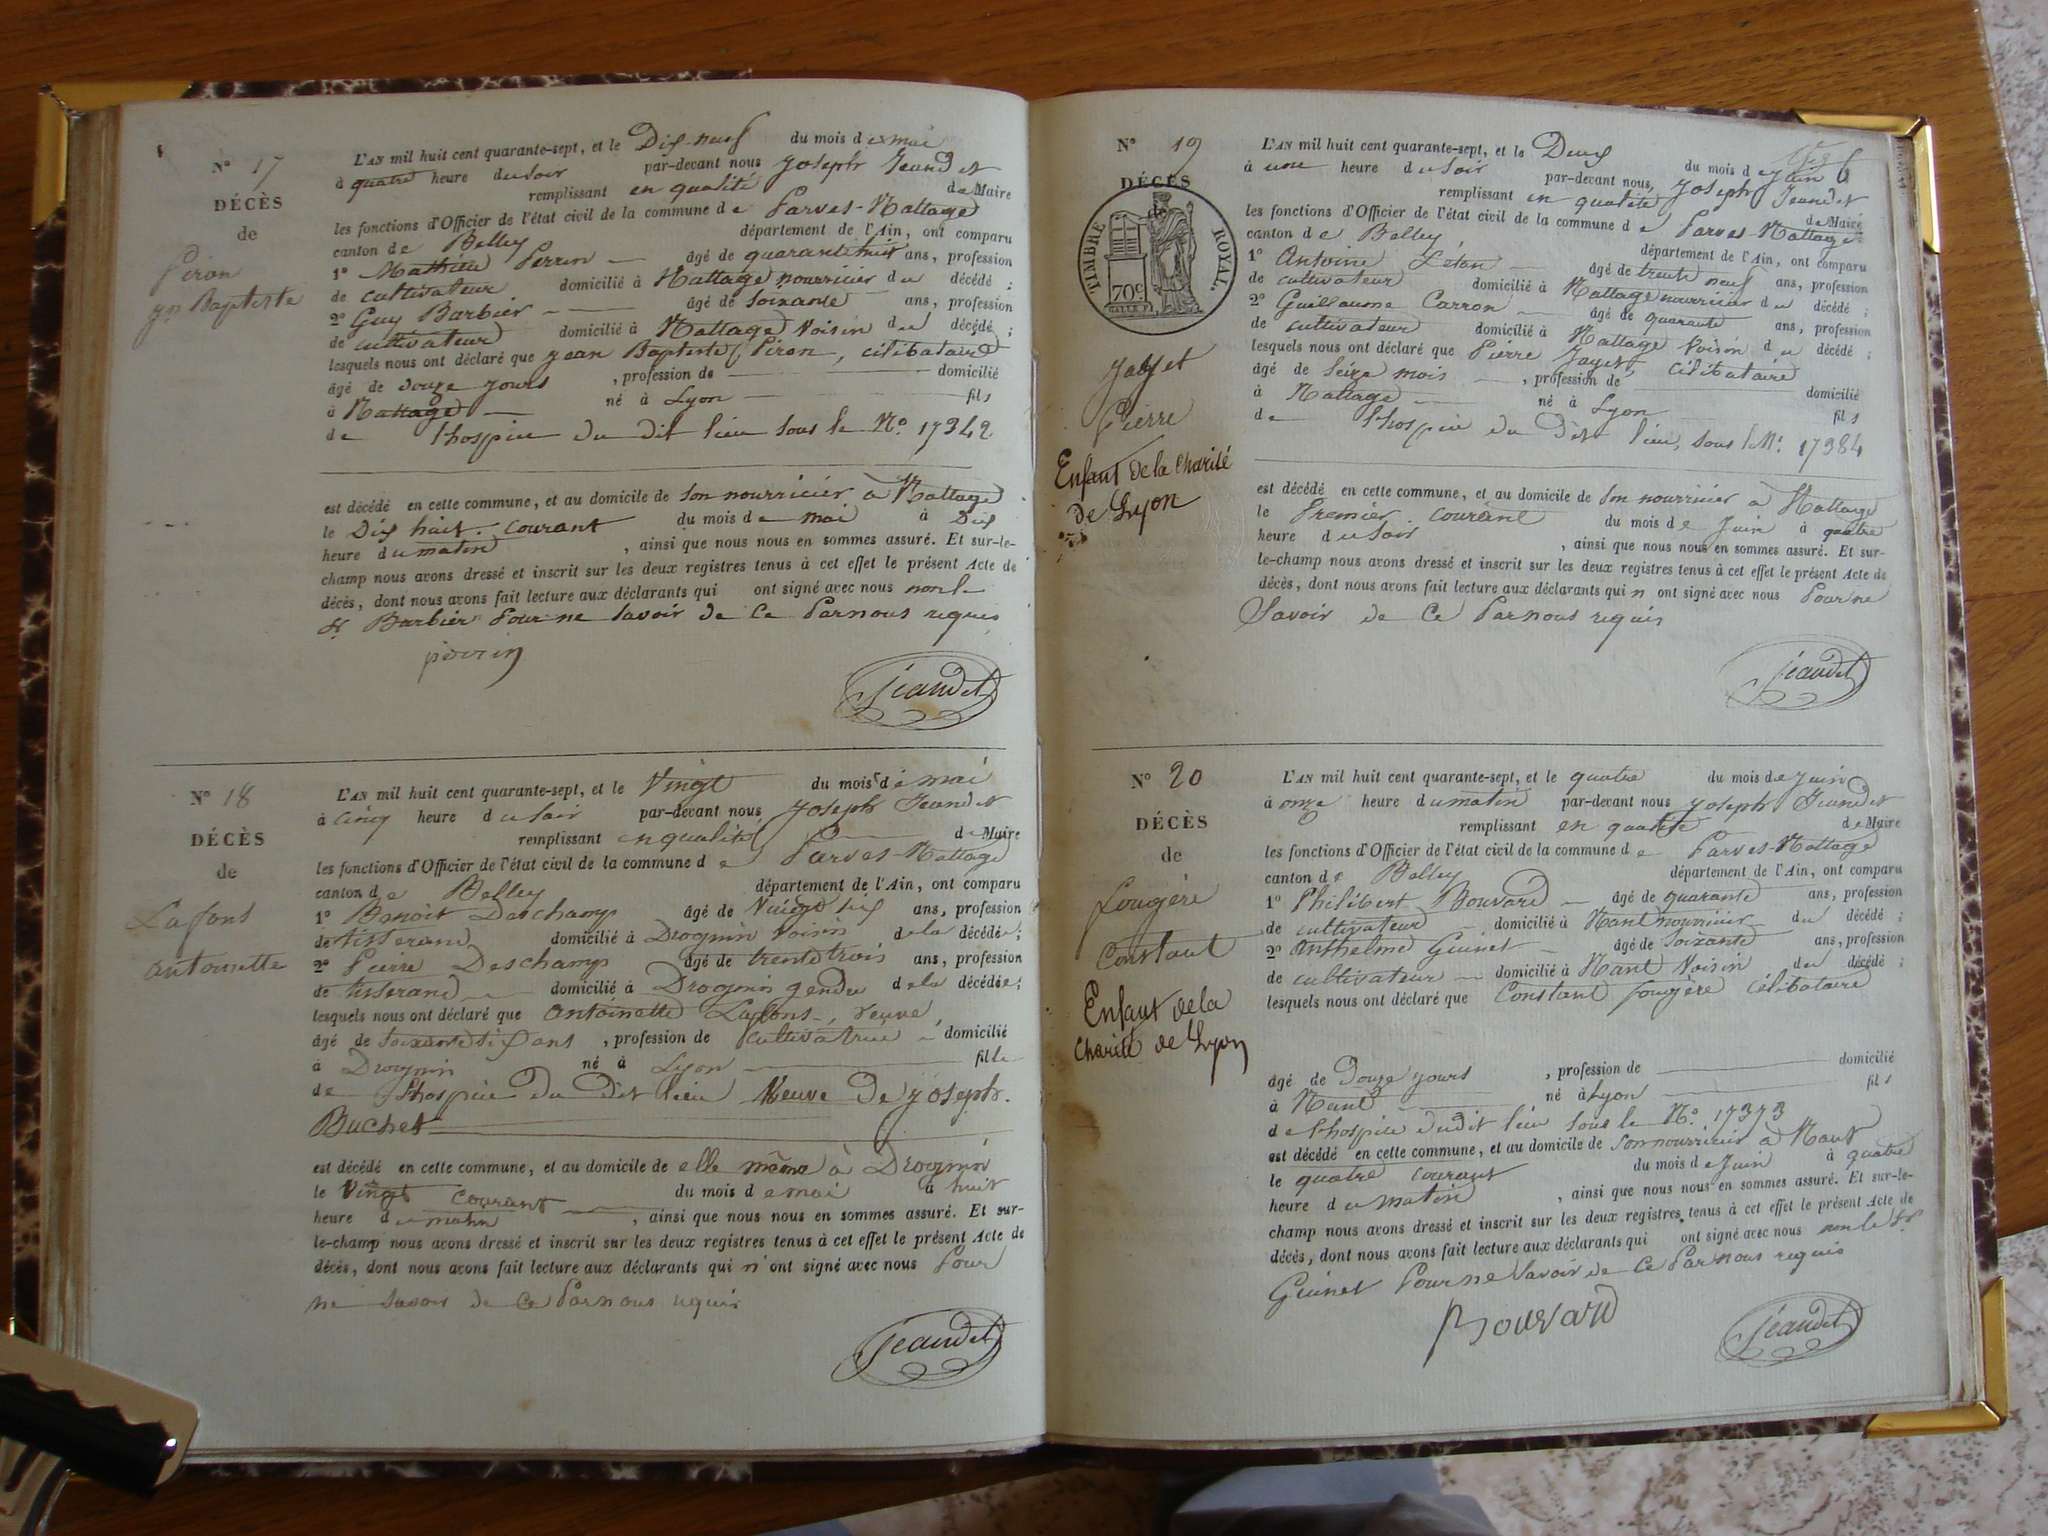 N° 17
DÉCÈS
de
Piron
Jn Baptiste
L'AN mil huit cent quarante-sept, et le Dix neuf du mois de mai
à quatre heure du soir par-devant nous Joseph Jeandet
remplissant en qualité de Maire
les fonctions d'Officier de l'état civil de la commune de Parves-Nattage
canton de Belley département de l'Ain, ont comparu
1° Mathieu Perrin âgé de quarante huit ans, profession
de cultivateur domicilié à Nattage nourricier du décédé ;
2° Guy Barbier âgé de soixante ans, profession
de cultivateur domicilié à Nattage Voisin du décédé ;
lesquels nous ont déclaré que Jean Baptiste Piron, célibataire
âgé de douze jours , profession de domicilié
à Nattage né à Lyon fils
de l'hospice du dit lieu sous le N° 17342
est décédé en cette commune, et au domicile de son nourricier à Nattage
le Dix huit courant du mois de mai à Dix
heure du matin , ainsi que nous nous en sommes assuré. Et sur-le-
champ nous avons dressé et inscrit sur les deux registres tenus à cet effet le présent Acte de
décès, dont nous avons fait lecture aux déclarants qui ont signé avec nous non le
Sr Barbier Pour ne savoir de ce Par nous requis
perrin
Jeandet
N° 18
DÉCÈS
de
Lafons
Antoinette
L'AN mil huit cent quarante-sept, et le Vingt du mois de mai
à cinq heure du soir par-devant nous Joseph Jeandet
remplissant en qualité de Maire
les fonctions d'Officier de l'état civil de la commune de Parves-Nattage
canton de Belley département de l'Ain, ont comparu
1° Benoit Deschamp âgé de Vingt six ans, profession
de tisserand domicilié à Drognin Voisin de la décédée ;
2° Pierre Deschamp âgé de trente trois ans, profession
de tisserand domicilié à Drognin gendre de la décédée ;
lesquels nous ont déclaré que Antoinette Lafons, veuve,
âgé de soixante six ans , profession de cultivatrice domicilié
à Drognin né à Lyon fille
de l'hospice du dit lieu Veuve de Joseph
Buchet
est décédé en cette commune, et au domicile de elle même à Drognin
le Vingt courant du mois de mai à huit
heure du matin , ainsi que nous nous en sommes assuré. Et sur-
le-champ nous avons dressé et inscrit sur les deux registres tenus à cet effet le présent Acte de
décès, dont nous avons fait lecture aux déclarants qui n'ont signé avec nous Pour
ne savoir de ce Par nous requis
Jeandet
N° 19
DÉCÈS
de
TIMBRE ROYAL.
70c
Jayet
Pierre
Enfant de la Charité
de Lyon
L'AN mil huit cent quarante-sept, et le Deux du mois de Juin
à une heure du soir par-devant nous, Joseph Jeandet
remplissant en qualité de Maire
les fonctions d'Officier de l'état civil de la commune de Parves-Nattage
canton de Belley département de l'Ain, ont comparu
1° Antoine âgé de trente neuf ans, profession
de cultivateur domicilié à Nattage nourricier du décédé ;
2° Guillaume Carron âgé de quarante ans, profession
de cultivateur domicilié à Nattage Voisin du décédé ;
lesquels nous ont déclaré que Pierre Jayet célibataire
âgé de seize mois , profession de domicilié
à Nattage né à Lyon fils
de l'hospice du dit lieu, sous le N° 17984
est décédé en cette commune, et au domicile de son nourricier à Nattage
le Premier courant du mois de Juin à quatre
heure du soir , ainsi que nous nous en sommes assuré. Et sur-
le-champ nous avons dressé et inscrit sur les deux registres tenus à cet effet le présent Acte de
décès, dont nous avons fait lecture aux déclarants qui n ont signé avec nous Pour ne
Savoir de ce Par nous requis
Jeandet
N° 20
DÉCÈS
de
fougère
Constant
Enfant de la
charité de Lyon
L'AN mil huit cent quarante-sept, et le quatre du mois de Juin
à onze heure du matin par-devant nous Joseph Jeandet
remplissant en qualité de Maire
les fonctions d'Officier de l'état civil de la commune de Parves-Nattage
canton de Belley département de l'Ain, ont comparu
1° Philibert Bouvard âgé de quarante ans, profession
de cultivateur domicilié à Nant nourricier du décédé ;
2° Anthelme Guinet âgé de soixante ans, profession
de cultivateur domicilié à Nant Voisin du décédé ;
lesquels nous ont déclaré que Constant fougère célibataire
âgé de douze jours , profession de domicilié
à Nant né à Lyon fils
de l'hospice dudit lieu sous le N° 17373
est décédé en cette commune, et au domicile de son nourricier à Nant
le quatre courant du mois de Juin à quatre
heure du matin , ainsi que nous nous en sommes assuré. Et sur-le-
champ nous avons dressé et inscrit sur les deux registres tenus à cet effet le présent Acte de
décès, dont nous avons fait lecture aux déclarants qui ont signé avec nous non le Sr
Guinet Pour ne Savoir de ce Par nous requis
Bouvard
Jeandet